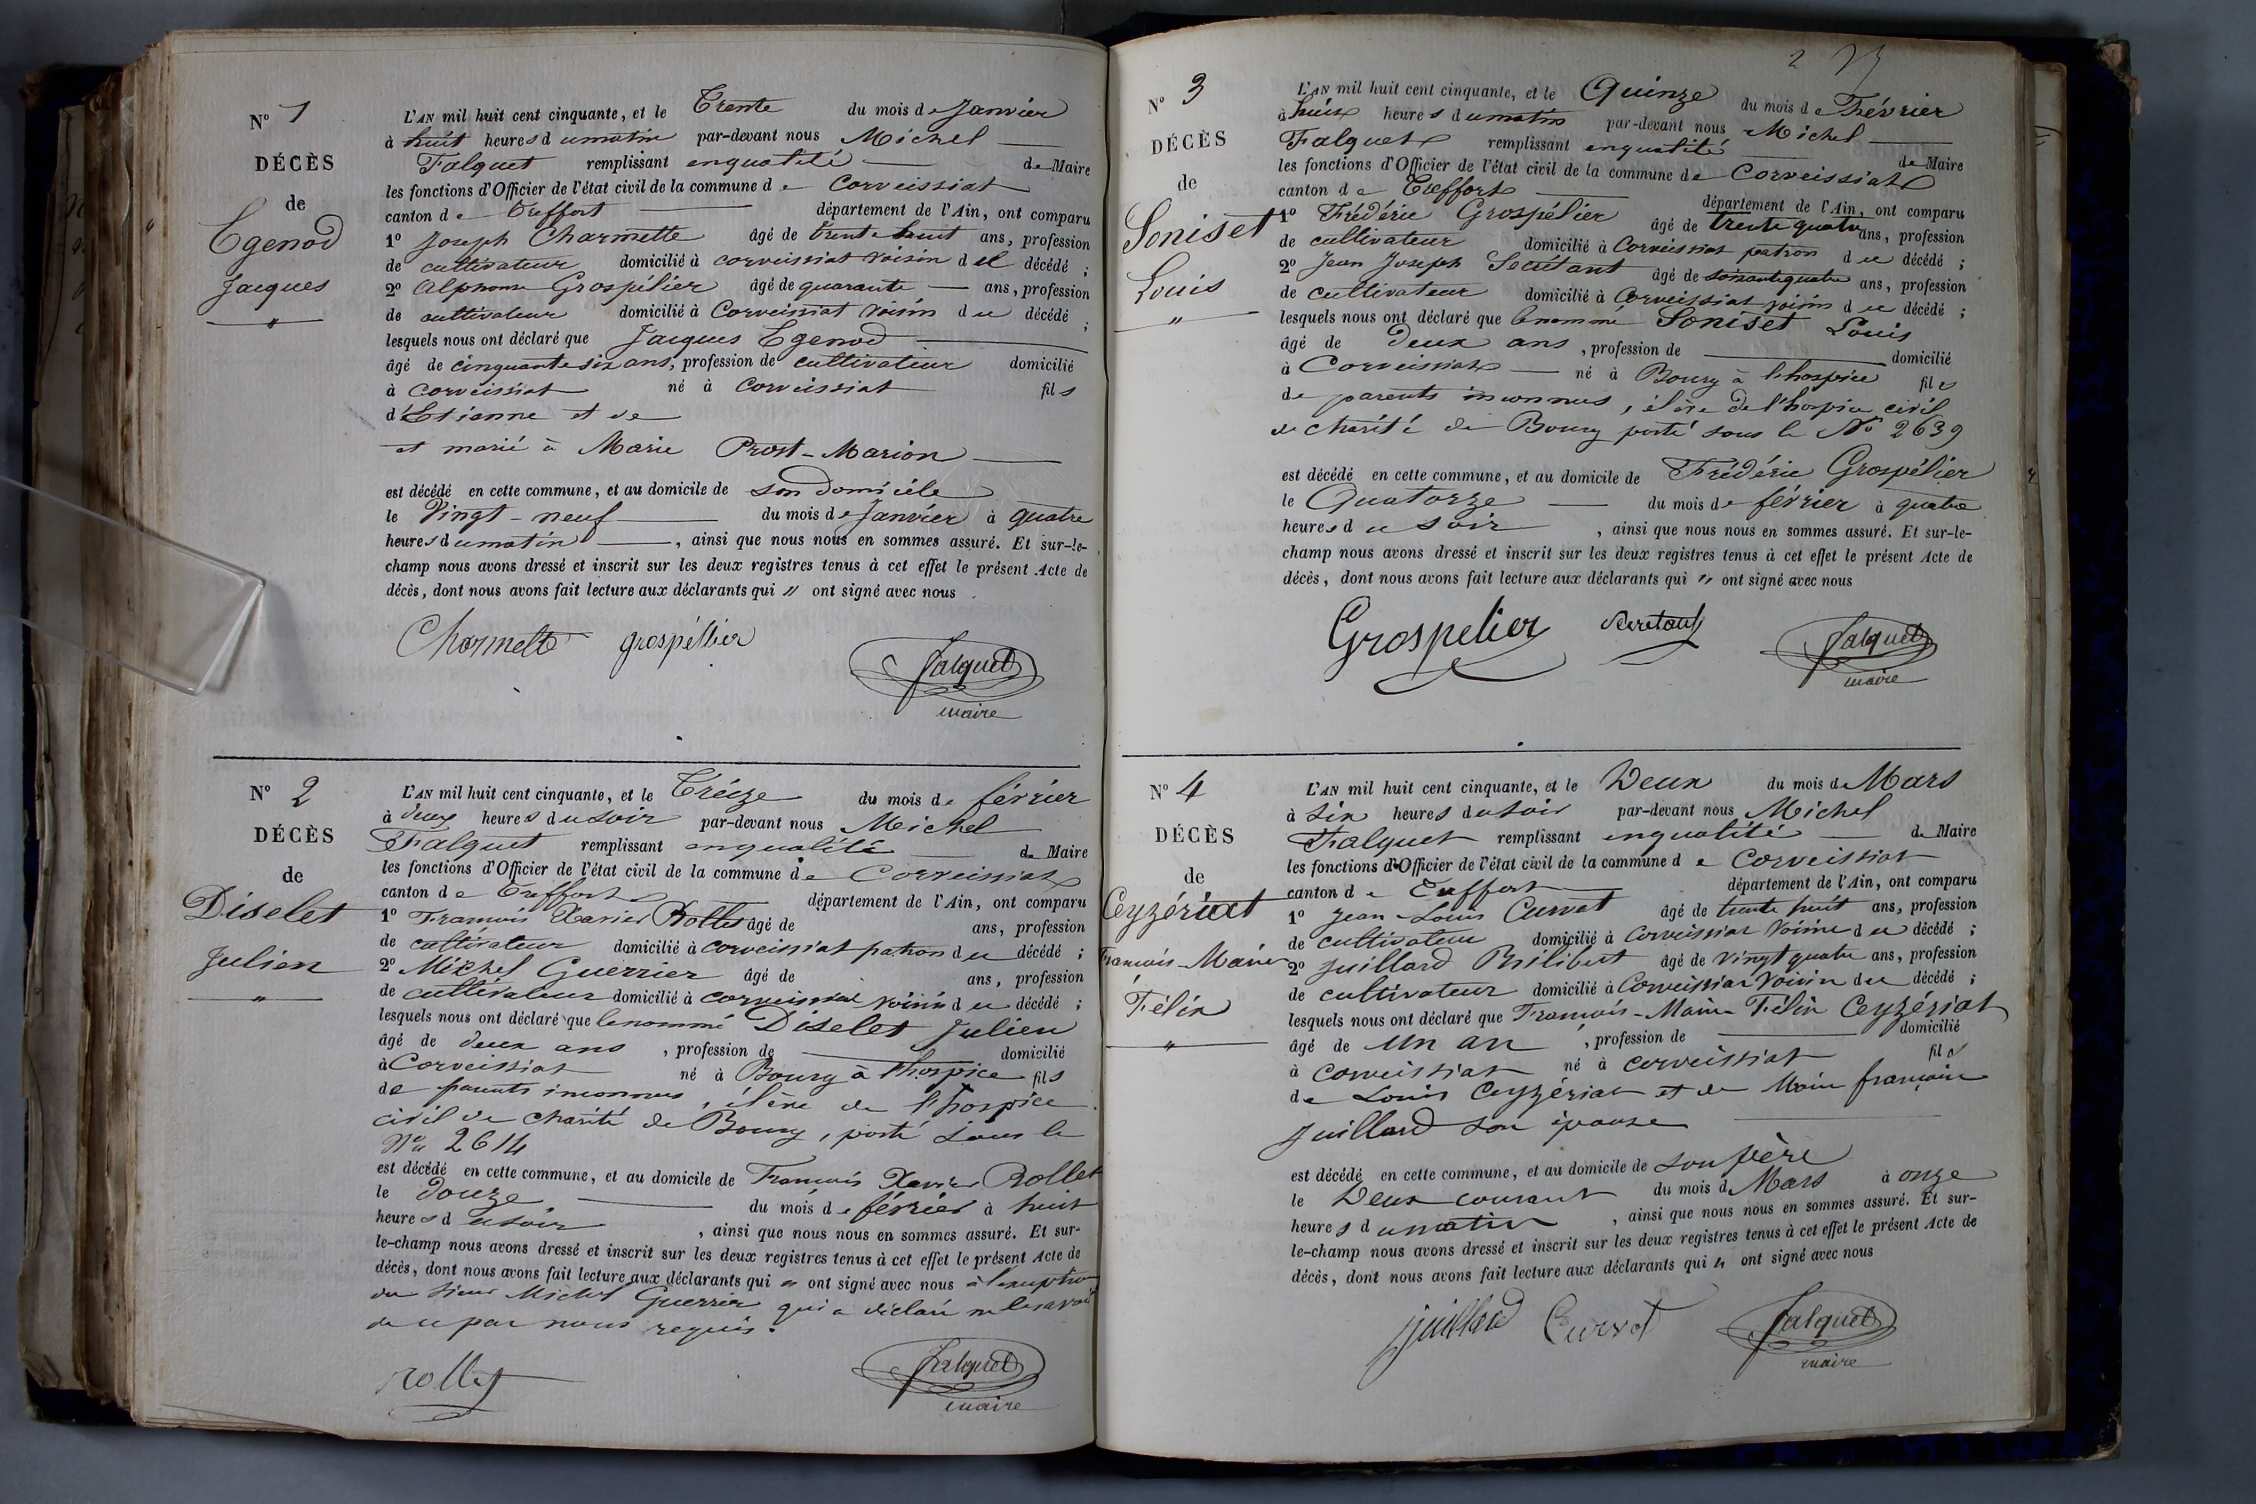 N° 1
DÉCÈS
de
Egenod
Jacques
"
L'AN mil huit cent cinquante, et le Trente du mois de Janvier
à huit heures du matin par-devant nous Michel
Falquet remplissant en qualité de Maire
les fonctions d'Officier de l'état civil de la commune de Corveissiat
canton de Treffort département de l'Ain, ont comparu
1° Joseph Charmette âgé de trente huit ans, profession
de cultivateur domicilié à corveissiat voisin du décédé ;
2° Alphonse Grospélier âgé de quarante ans, profession
de cultivateur domicilié à Corveissiat voisin du décédé ;
lesquels nous ont déclaré que Jacques Egenod
âgé de cinquante six ans, profession de cultivateur domicilié
à corveissiat né à corveissiat fils
d'Etienne et de
et marié à Marie Prost-Marion
est décédé en cette commune, et au domicile de son domicile
le Vingt-neuf du mois de Janvier à quatre
heures du matin, ainsi que nous nous en sommes assuré. Et sur-le-
champ nous avons dressé et inscrit sur les deux registres tenus à cet effet le présent Acte de
décès, dont nous avons fait lecture aux déclarants qui " ont signé avec nous
Charmette grospéllier
falquet
maire
N° 2
DÉCÈS
de
Diselet
Julien
"
L'AN mil huit cent cinquante, et le Tréize du mois de février
à deux heures du soir par-devant nous Michel
Falquet remplissant en qualité de Maire
les fonctions d'Officier de l'état civil de la commune de Corveissiat
canton de Treffort département de l'Ain, ont comparu
1° François Xavier Rollet âgé de ans, profession
de cultivateur domicilié à corveissiat patron du décédé ;
2° Michel Guerrier âgé de ans, profession
de cultivateur domicilié à corveissiat voisin du décédé ;
lesquels nous ont déclaré que lenommé Diselet Julien
âgé de deux ans, profession de domicilié
à Corveissiat né à Bourg à l'hospice fils
de parents inconnus, élève de l'hospice
civil de charité de Bourg, porté sous le
N° 2614
est décédé en cette commune, et au domicile de François Xavier Rollet
le douze du mois de février à huit
heures du soir, ainsi que nous nous en sommes assuré. Et sur-
le-champ nous avons dressé et inscrit sur les deux registres tenus à cet effet le présent Acte de
décès, dont nous avons fait lecture aux déclarants qui " ont signé avec nous à l'exception
du sieur Michel Guerrier qui a déclaré ne le savoir
de ce par nous requis.
rollet
falquet
maire
2 23
N° 3
DÉCÈS
de
Soniset
Louis
"
L'AN mil huit cent cinquante, et le Quinze du mois de Février
à huit heures du matin par-devant nous Michel
Falquet remplissant en qualité de Maire
les fonctions d'Officier de l'état civil de la commune de Corveissiat
canton de Treffort département de l'Ain, ont comparu
1° Frédéric Grospélier âgé de trente quatre ans, profession
de cultivateur domicilié à Corveissiat patron du décédé ;
2° Jean Joseph Secrétant âgé de soixante quatre ans, profession
de cultivateur domicilié à Corveissiat voisin du décédé ;
lesquels nous ont déclaré que lenommé Soniset Louis
âgé de Deux ans, profession de domicilié
à Corveissiat né à Bourg à l'hospice fils
de parents inconnus, élève de l'hospice civil
de charité de Bourg porté sous le N° 2639
est décédé en cette commune, et au domicile de Frédéric Grospélier
le Quatorze du mois de février à quatre
heures du soir, ainsi que nous nous en sommes assuré. Et sur-le-
champ nous avons dressé et inscrit sur les deux registres tenus à cet effet le présent Acte de
décès, dont nous avons fait lecture aux déclarants qui " ont signé avec nous
Grospelier Secretant
falquet
maire
N° 4
DÉCÈS
de
Ceyzériat
François-Marie
Félix
"
L'AN mil huit cent cinquante, et le Deux du mois de Mars
à six heures du soir par-devant nous Michel
Falquet remplissant en qualité de Maire
les fonctions d'Officier de l'état civil de la commune de Corveissiat
canton de Treffort département de l'Ain, ont comparu
1° Jean-Louis Curvat âgé de trente huit ans, profession
de cultivateur domicilié à Corveissiat voisin du décédé ;
2° Juillard Philibert âgé de vingt quatre ans, profession
de cultivateur domicilié à Corveissiat voisin du décédé ;
lesquels nous ont déclaré que François-Marie Félix Ceyzériat
âgé de un an, profession de domicilié
à corveissiat né à corveissiat fils
de Louis Ceyzériat et de Marie françoise
Juillard son épouse
est décédé en cette commune, et au domicile de son père
le Deux courant du mois de Mars à onze
heures du matin, ainsi que nous nous en sommes assuré. Et sur-
le-champ nous avons dressé et inscrit sur les deux registres tenus à cet effet le présent Acte de
décès, dont nous avons fait lecture aux déclarants qui " ont signé avec nous
juillard Curvat
falquet
maire